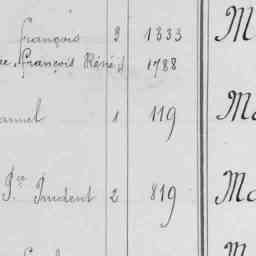 François 3 1333 M
François Réné 4 1788
anuel 1 119 Ma
Pre Prudent 2 819 Ma
M